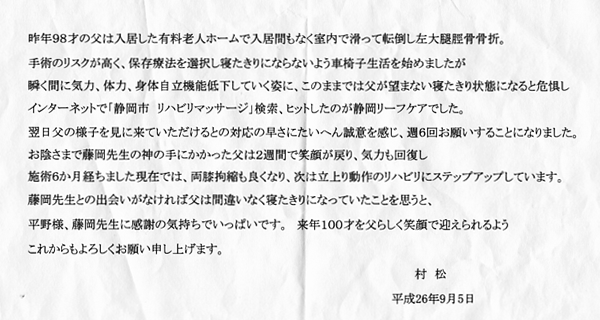 昨年98才の父は入居した有料老人ホームで入居間もなく室内で滑って転倒し左大腿脛骨骨折。
手術のリスクが高く、保存療法を選択し寝たきりにならないよう車椅子生活を始めましたが
瞬く間に気力、体力、身体自立機能低下していく姿に、このままでは父が望まない寝たきり状態になると危惧し
インターネットで「静岡市　リハビリマッサージ」検索、ヒットしたのが静岡リーフケアでした。
翌日父の様子を見に来ていただけるとの対応の早さにたいへん誠意を感じ、週6回お願いすることになりました。
お陰さまで藤岡先生の神の手にかかった父は2週間で笑顔が戻り、気力も回復し
施術6か月経ちました現在では、両膝拘縮も良くなり、次は立上り動作のリハビリにステップアップしています。
藤岡先生との出会いがなければ父は間違いなく寝たきりになっていたことを思うと、
平野様、藤岡先生に感謝の気持ちでいっぱいです。　来年100才を父らしく笑顔で迎えられるよう
これからもよろしくお願い申し上げます。
村　松
平成26年9月5日